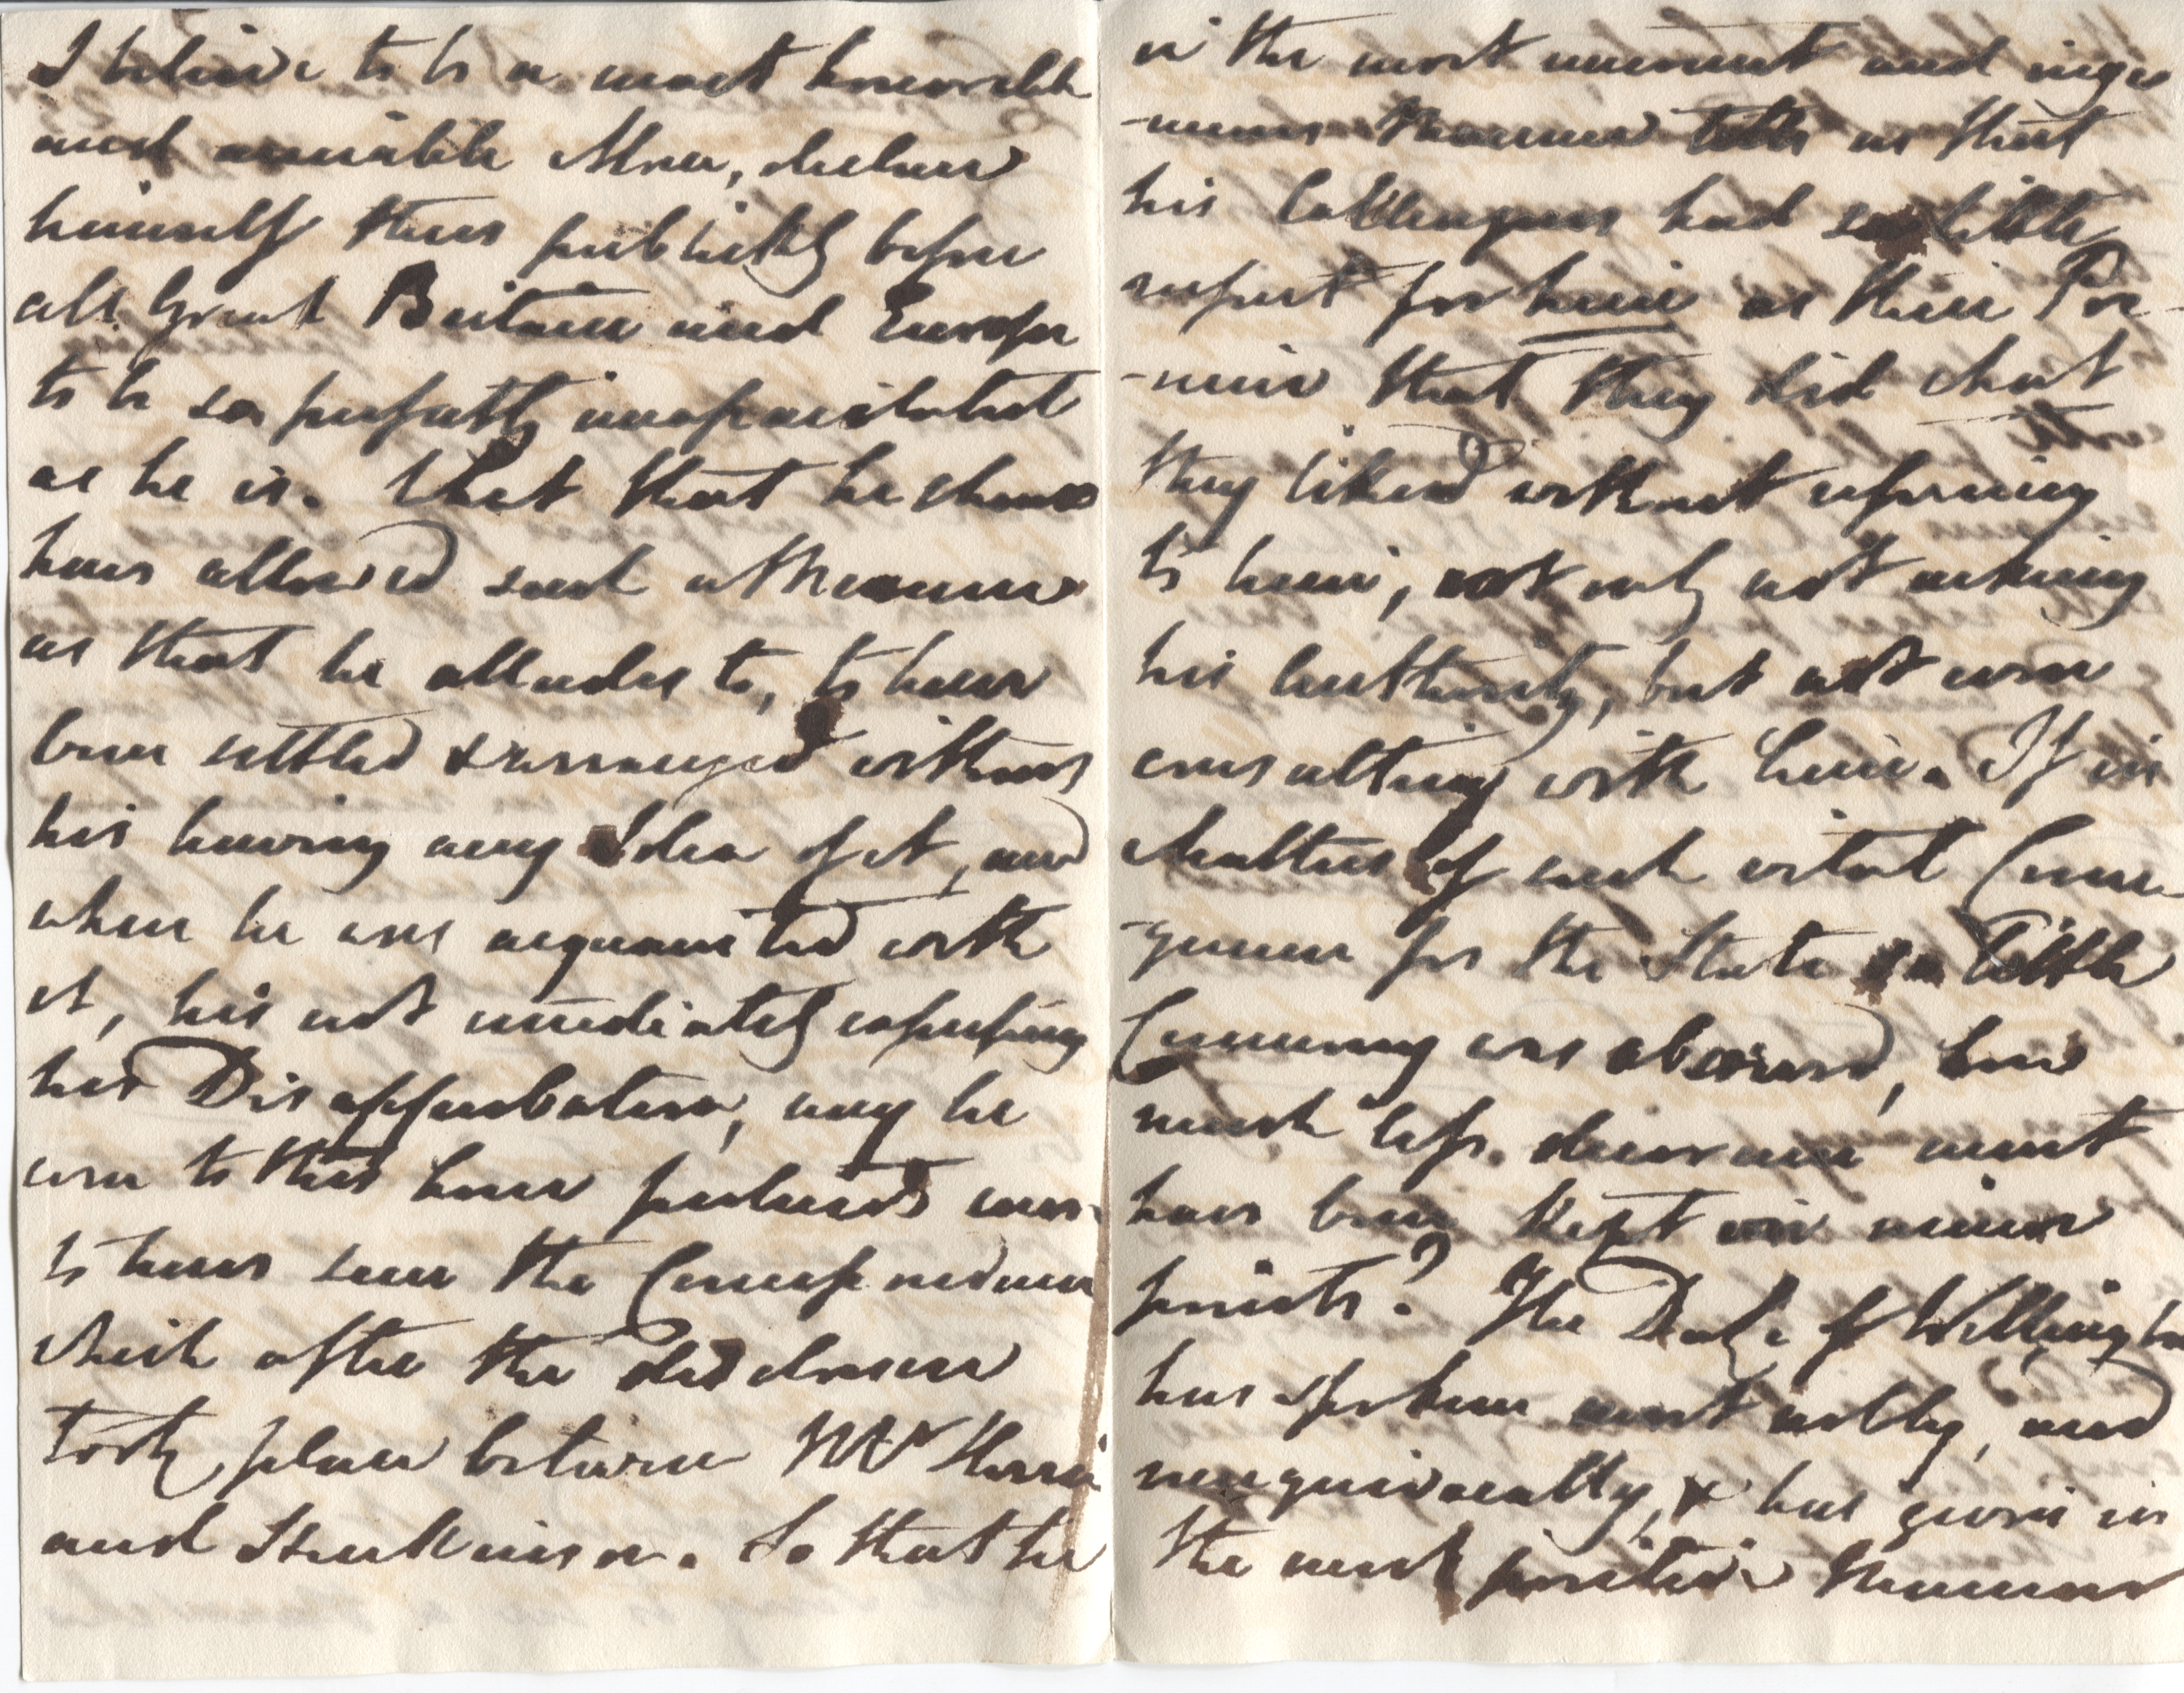 I believe to be a most honorable
and amiable Man, declare
himself thus publickly before
all Great Britain and Europe
to be so perfectly unsophisticated
as he is. What that he should
have allowed such a Measure
as that he alludes to, to have
been settled & arranged without
his having any Idea of it, and
when he was acquainted with
it, his not immediately expressing
his Disapprobation, nay he
even to this hour professes never
to have seen the Correspondence
which after the disclosure
took place between Mr Herries
and Huskisson. So that he
in the most innocent and inge
-nuous Manner tells us that
his Colleagues had so little
respect for him as their Pre-
-mier that they did what
they liked without referring
to him, not only not asking
his Authority, but not even
consulting with him. If in
Matters of such vital Conse
-quence for the State so little
Ceremony was observed, how
much less decorum must
have been kept on minor
points? The Duke of Wellington
has spoken most nobly, and
unequivocally, & has given in
the most positive Manner